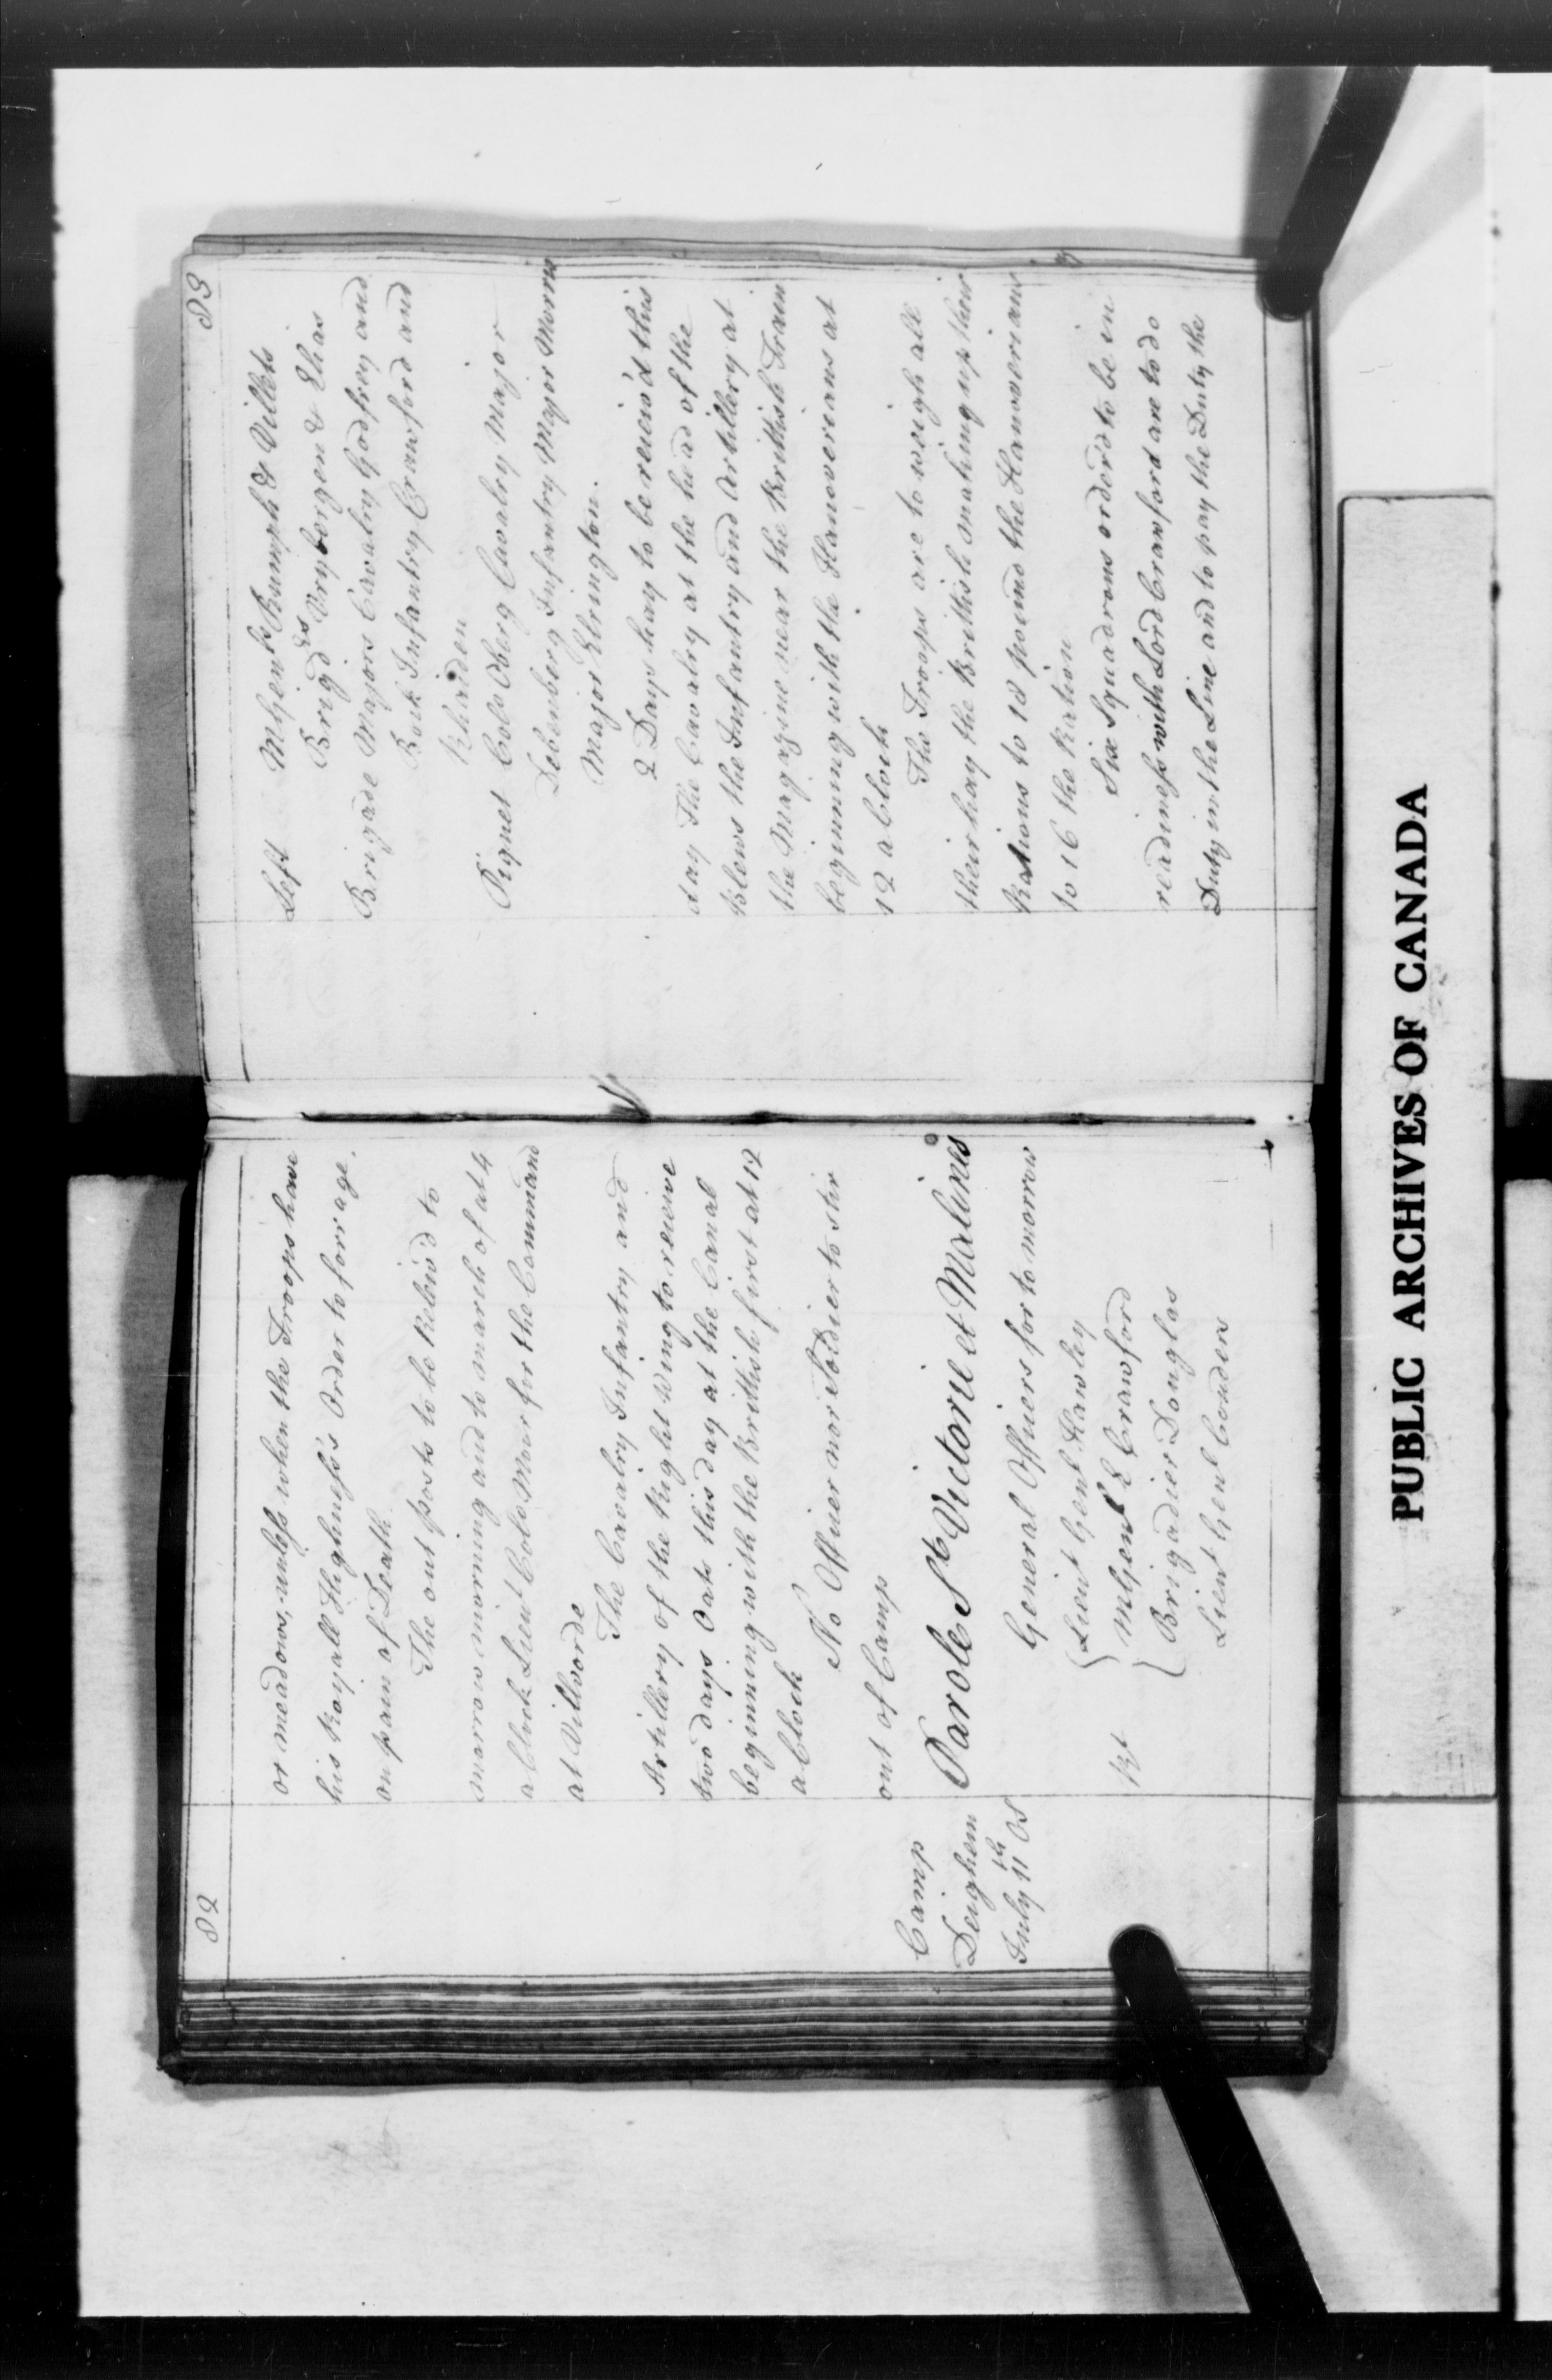 82
or meadows, unless when the Troops have
his Royall Highness's Order to forrage.
on pain of Death
The out posts to be Reliev'd to
morrow morning and to march of at 4
a Clock Lieut Colo Muir for the Command
at Villvorde
The Cavalry Infantry and
Artillery of the Right Wing to receive
two days Oats this day at the Canal
beginning with the Brittish first at 12
a Clock
No Officer nor Soldier to stir
out of Camp
Camp
Deighem
July 11th OS
Parole St Victorie et Malines
General Officers for to morrow
Lieut Genl Hawley
Rt
MGenl E Crawford
Brigadier Douglas
Lieut Genl Couders
83
Left MGenls Bumph & Villets
Brigdrs Vryborgen & Elias
Brigade Majors Cavalry Godfrey and
Bock Infantry Crawford and
Rhaiden
Piquet Colo Oberg Cavalry Major
Debenberg Infantry Major Morris
Major Elrington.
2 Days hay to be receiv'd this
day The Cavalry at the head of the
Blews the Infantry and Artillery at
the Magazine near the Brittish Train
beginning with the Hanoverians at
12 a Clock
The Troops are to weigh all
their hay the Brittish making up their
Rations to 18 pound the Hanoverians
to 16 the Ration
Six Squadrons orderd to be in
readiness with Lord Crawford are to do
Duty in the Line and to pay the Duty the
PUBLIC ARCHIVES OF CANADA